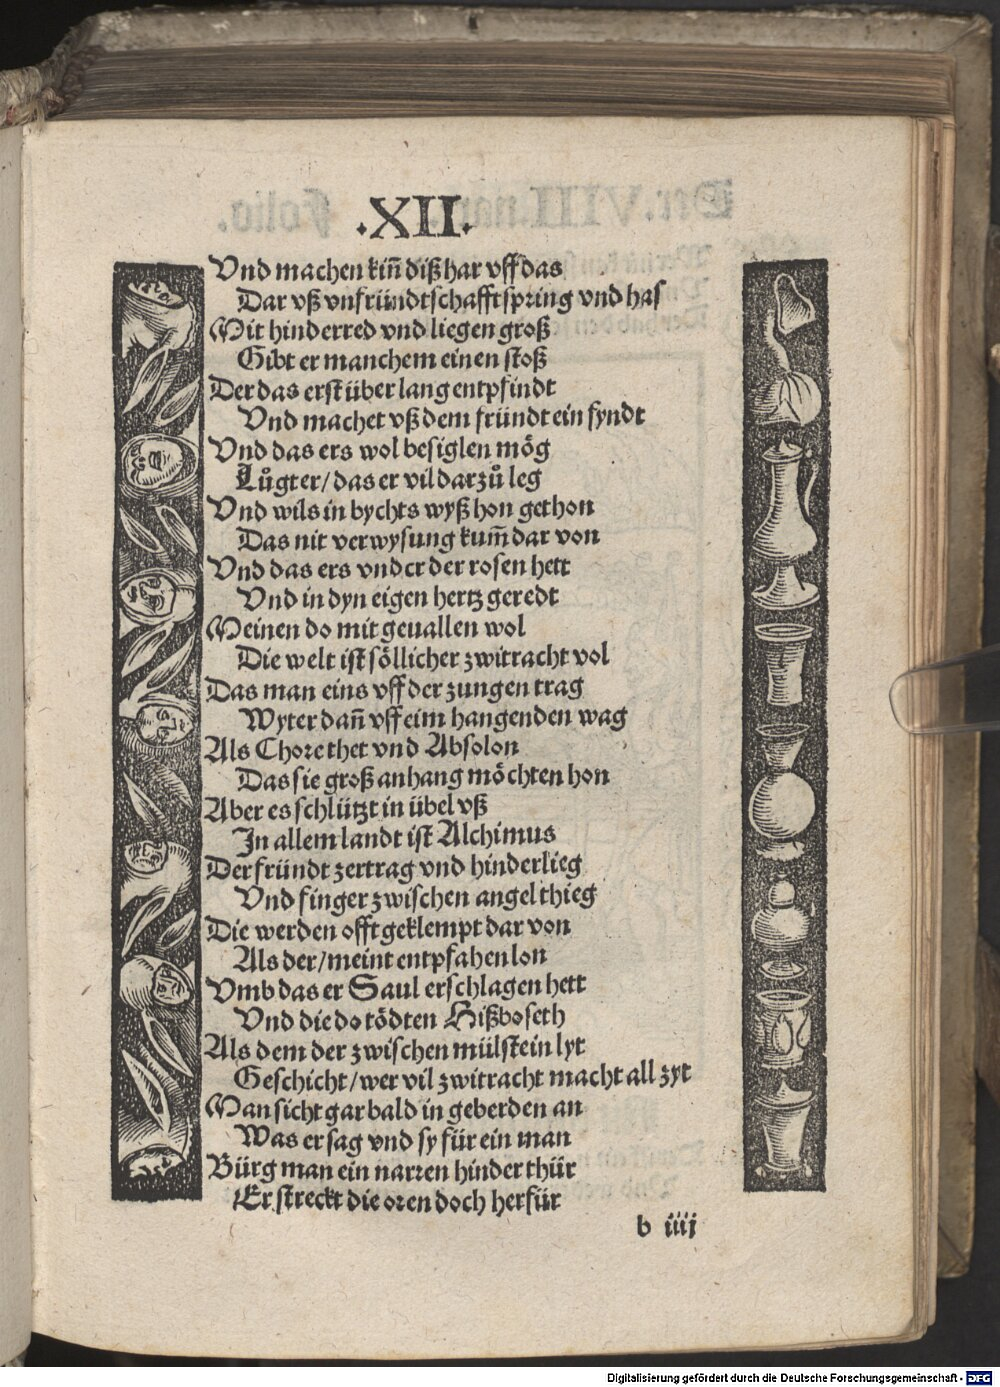 .XII.
Vnd machen kiñ diß har vff das
Dar vß vnfründtschafft spring vnd has
Mit hinderred vnd liegen groß
Gibt er manchem einen stoß
Der das erst über lang entpfindt
Vnd machet vß dem fründt ein fyndt
Vnd das ers wol besiglen mög
Lůgt er / das er vil darzů leg
Vnd wils in bychts wyß hon gethon
Das nit verwysung kum̃ dar von
Vnd das ers vnder der rosen hett
Vnd in dyn eigen hertz geredt
Meinen do mit geuallen wol
Die welt ist söllicher zwitracht vol
Das man eins vff der zungen trag
Wyter dañ vff eim hangenden wag
Als Chore thet vnd Absolon
Das sie groß anhang möchten hon
Aber es schlützt in übel vß
In allem landt ist Alchimus
Der fründt zertrag vnd hinderlieg
Vnd finger zwischen angel thieg
Die werden offt geklempt dar von
Als der / meint entpfahen lon
Vmb das er Saul erschlagen hett
Vnd die do tödten Hißboseth
Als dem der zwischen mülstein lyt
Geschicht / wer vil zwitracht macht all zyt
Man sicht gar bald in geberden an
Was er sag vnd sy für ein man
Bürg man ein narren hinder thür
Er streckt die oren doch herfür
b iiij
Digitalisierung gefördert durch die Deutsche Forschungsgemeinschaft - DFG